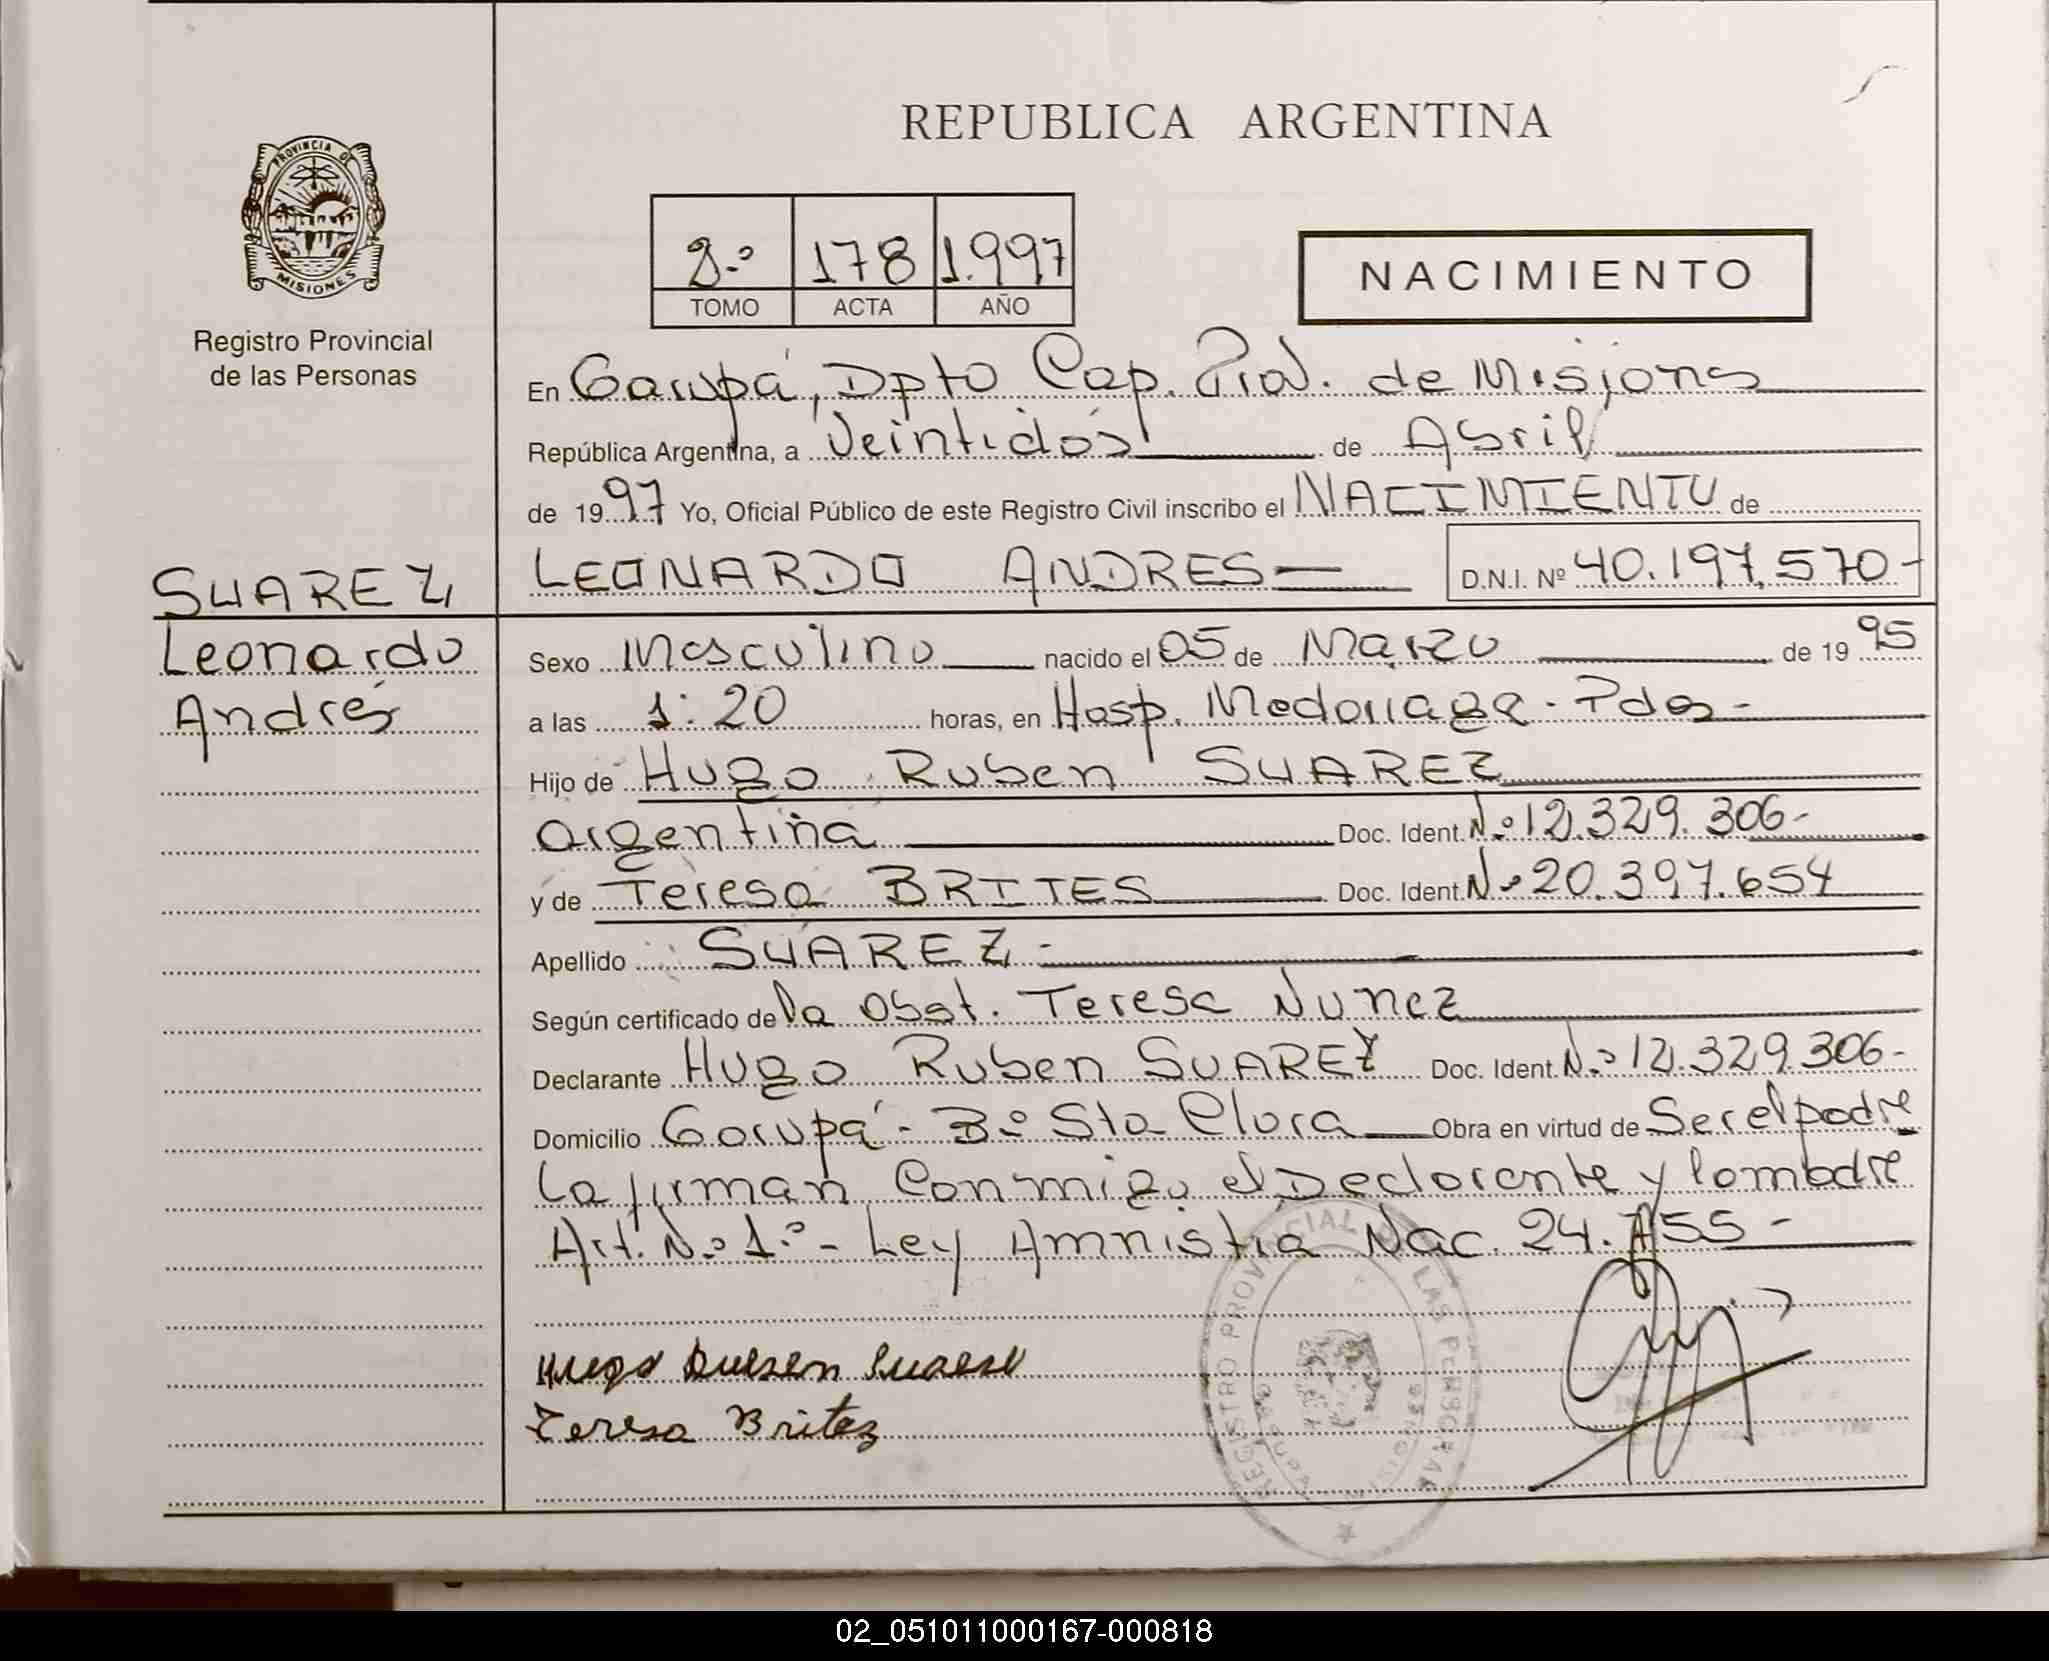 REPUBLICA ARGENTINA
PROVINCIA DE
MISIONES
Registro Provincial
de las Personas
2.º 178 1.997
TOMO ACTA AÑO
NACIMIENTO
En Garupá, Dpto Cap. Pcia. de Misiones
República Argentina, a Veintidós de Abril
de 1997 Yo, Oficial Público de este Registro Civil inscribo el NACIMIENTO de
SUAREZ
Leonardo
Andrés
LEONARDO ANDRES D.N.I. Nº 40.197.570-
Sexo Masculino nacido el 05 de Marzo de 1995
a las 1:20 horas, en Hosp. Madariaga - Pdas -
Hijo de Hugo Ruben SUAREZ
argentina Doc. Ident. N.º 12.329.306-
y de Teresa BRITES Doc. Ident. Nº 20.397.654
Apellido SUAREZ -
Según certificado de la Obst. Teresa Nunez
Declarante Hugo Ruben SUAREZ Doc. Ident. N.º 12.329.306-
Domicilio Garupá - Bº Sta Clara Obra en virtud de Ser el padre
La firman Conmigo el Declarante y la madre
Art. N.º 1.º - Ley Amnistia Nac. 24.755 -
Hugo Ruben Suarez
Teresa Britez
REGISTRO PROVINCIAL DE LAS PERSONAS
02_051011000167-000818